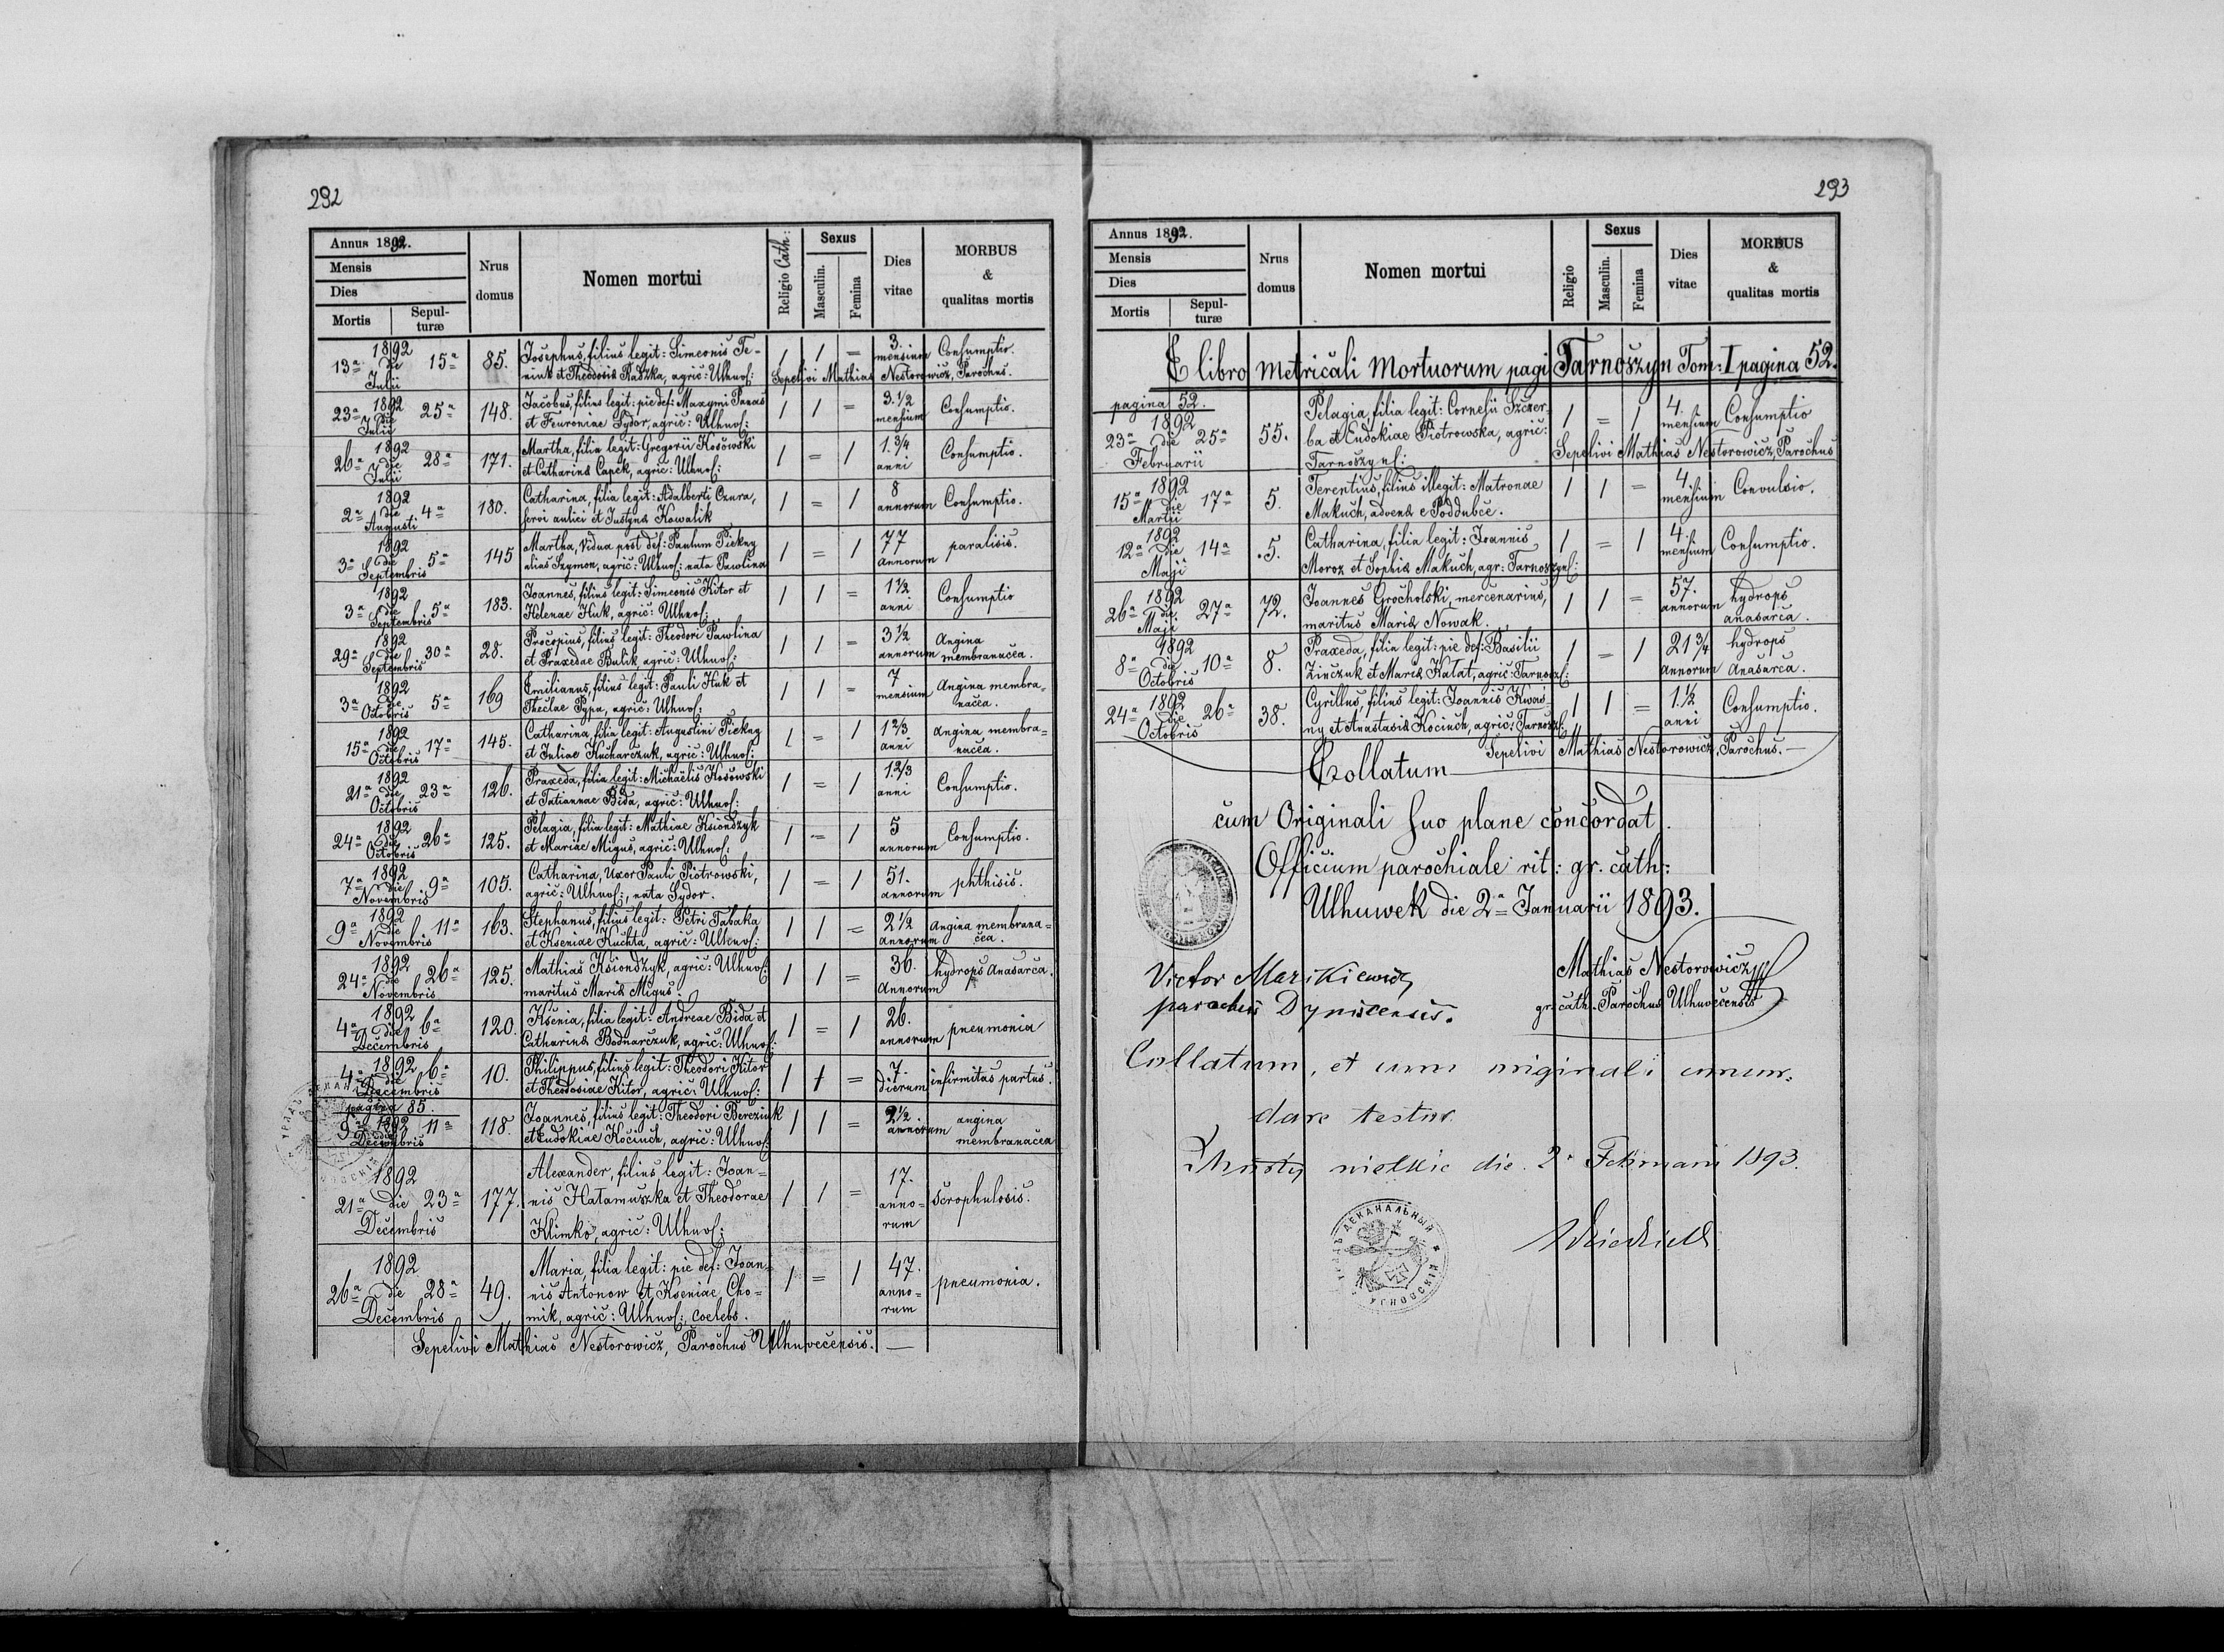 292
Annus 1892.
Mensis
Dies
Mortis
Sepul-
turæ
Nrus
domus
Nomen mortui
Religio Cath:
Sexus
Masculin.
Femina
Dies
vitae
MORBUS
&
qualitas mortis
1892
13a die 15a 85. Josephus, filius legit: Simeonis Te- 1 1 = 3. mensium Consumptio.
Julii niuk et Theodosia Raszka, agric: Ulhuv: Sepelivi Mathias Nestorowicz, Parochus.
1892
23a die 25a 148. Jacobus, filius legit: pie def: Maxymi Panas 1 1 = 3. 1/2 mensium Consumptio.
Julii et Feuroniae Sydor, agric: Ulhuv:
1892
26a die 28a 171. Martha, filia legit: Gregorii Kosowski 1 = 1 1. 3/4 anni Consumptio.
Julii et Catharina Capek, agric: Ulhuv:
1892
2a die 4a 180. Catharina, filia legit: Adalberti Ozura, 1 = 1 8 annorum Consumptio.
Augusti servi aulici et Justyna Kowalik
1892
3a die 5a 145 Martha, Vidua post def: Paulum Piekny 1 = 1 77 annorum paralisis.
Septembris alias Szymon, agric: Ulhuv: nata Pawlina
1892
3a die 5a 183. Joannes, filius legit: Simeonis Kitor et 1 1 = 1 1/2 anni Consumptio
Septembris Helenae Huk, agric: Ulhuv:
1892
29a die 30a 28. Procopius, filius legit: Theodori Pawlina 1 1 = 3 1/2 annorum Angina
Septembris et Praxedae Bulik, agric: Ulhuv: membranacea.
1892
3a die 5a 169 Emilianus, filius legit: Pauli Huk et 1 1 = 7 mensium Angina membra=
Octobris Theclae Pypa, agric: Ulhuv: nacea.
1892
15a die 17a 145. Catharina, filia legit: Augustini Piekny 1 = 1 1 2/3 anni angina membra=
Octobris et Juliae Kucharczuk, agric: Ulhuv: nacea.
1892
21a die 23a 126. Praxeda, filia legit: Michaëlis Kosowski 1 = 1 1. 2/3 anni Consumptio.
Octobris et Tatiannae Bida, agric: Ulhuv:
1892
24a die 26a 125. Pelagia, filia legit: Mathiae Ksiondzyk 1 = 1 5 annorum Consumptio.
Octobris et Mariae Migus, agric: Ulhuv:
1892
7a die 9a 105. Catharina, Uxor Pauli Piotrowski, 1 = 1 51. annorum phthisis.
Novembris agric: Ulhuv:, nata Sydor.
1892
9a die 11a 163. Stephanus, filius legit: Petri Tabaka 1 1 = 2 1/2 annorum Angina membrana=
Novembris et Kseniae Kuchta, agric: Ulhuv: cea.
1892
24a die 26a 125. Mathias Ksiondzyk, agric: Ulhuv: 1 1 = 36. Annorum hydrops Anasarca.
Novembris maritus Maria Migus.
1892
4a die 6a 120. Ksenia, filia legit: Andreae Bida et 1 = 1 26. annorum pneumonia
Decembris Catharina Bodnarczuk, agric: Ulhuv:
1892
4a die 6a 10. Philippus, filius legit: Theodori Kitor 1 1 = 7. dierum infirmitas partus.
Decembris et Theodosiae Kitor, agric: Ulhuv:
pagina 85.
1892
9a die 11a 118. Joannes, filius legit: Theodori Bereziuk 1 1 = 2 1/2. annorum angina
Decembris et Eudokiae Kociuch, agric: Ulhuv: membranacea
1892 Alexander, filius legit: Joan= 17.
21a die 23a 177. nis Hałamuszka et Theodorae 1 1 = anno= Scrophulosis.
Decembris Klimko, agric: Ulhuv: rum
1892 Maria, filia legit: pie def: Joan= 47.
26a die 28a 49. nis Antonow et Kseniae Cho= 1 = 1 anno= pneumonia.
Decembris mik, agric: Ulhuv:, coelebs. rum
Sepelivi Mathias Nestorowicz, Parochus Ulhuvecensis. —
293
Annus 1892.
Mensis
Dies
Mortis
Sepul-
turæ
Nrus
domus
Nomen mortui
Religio
Sexus
Masculin.
Femina
Dies
vitae
MORBUS
&
qualitas mortis
E libro metricali Mortuorum pagi Tarnoszyn Tom: I pagina 52.
pagina 52.
1892 Pelagia, filia legit: Cornelii Szczer= 1 = 1 4. mensium Consumptio
23a die 25a 55. ba et Eudokiae Piotrowska, agric:
Februarii Tarnoszyn: Sepelivi Mathias Nestorowicz, Parochus
1892
15a die 17a 5. Terentius, filius illegit: Matronae 1 1 = 4. mensium Convulsio.
Martii Makuch, advena e Poddubce.
1892
12a die 14a 5. Catharina, filia legit: Joannis 1 = 1 4 mensium Consumptio.
Maji Moroz et Sophia Makuch, agr: Tarnoszyn:
1892
26a die 27a 72. Joannes Grocholski, mercenarius, 1 1 = 57. annorum hydrops
Maji maritus Maria Nowak. anasarca.
1892
8a die 10a 8. Praxeda, filia legit: pie def: Basilii 1 = 1 21 3/4 annorum hydrops
Octobris Zinczuk et Maria Kałat, agric: Tarnosz: Anasarca.
1892
24a die 26a 38. Cyrillus, filius legit: Joannis Kwaś= 1 1 = 1. 1/2 anni Consumptio.
Octobris ny et Anastasia Kociuch, agric: Tarnosz:
Sepelivi Mathias Nestorowicz, Parochus. —
Collatum
cum Originali suo plane concordat.
Officium parochiale rit: gr. cath:
Ulhuwek die 2a Januarii 1893.
Mathias Nestorowicz
gr. cath. Parochus Ulhuvecensis
Victor
parochus Dyniscensis.
Collatum, et cum originali concor=
dare testor.
die 2. Februarii 1893.
ДЕКАНАЛЬНЫЙ